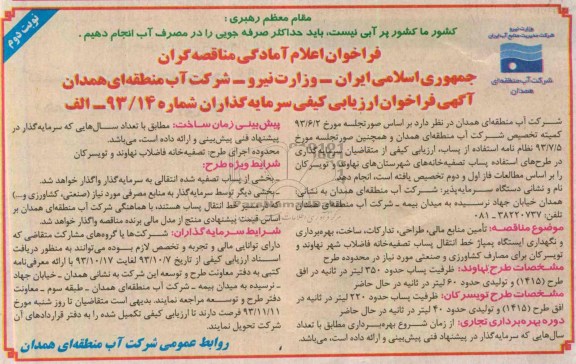 نوبت دوم
مقام معظم رهبری :
کشور ما کشور پر آبی نیست، باید حداکثر صرفه جویی را در مصرف آب انجام دهیم .
وزارت نیرو
شرکت مدیریت منابع آب ایران
شرکت آب منطقه‌ای
همدان
فراخوان اعلام آمادگی مناقصه گران
جمهوری اسلامی ایران ــ وزارت نیرو ــ شرکت آب منطقه‌ای همدان
آگهی فراخوان ارزیابی کیفی سرمایه گذاران شماره ۹۳/۱۴ــ الف
شرکت آب منطقه‌ای همدان در نظر دارد بر اساس صورتجلسه مورخ ۹۳/۶/۲
کمیته تخصیص شرکت آب منطقه‌ای همدان و همچنین صورتجلسه مورخ
۹۳/۷/۵ نظام نامه استفاده از پساب، ارزیابی کیفی از متقاضیان سرمایه گذاری
در طرح‌های استفاده پساب تصفیه‌خانه‌های شهرستان‌های نهاوند و تویسرکان
را بر اساس مطالعات فاز اول و دوم تخصیص یافته است، انجام دهد.
نام و نشانی دستگاه سرمایه‌پذیر: شرکت آب منطقه‌ای همدان به نشانی:
همدان خیابان جهاد نرسیده به میدان بیمه ــ شرکت آب منطقه‌ای همدان
تلفن: ۳۸۲۲۰۷۳۷ ـ ۰۸۱
موضوع مناقصه: تأمین منابع مالی، طراحی، تدارکات، ساخت، بهره‌برداری
و نگهداری ایستگاه پمپاژ خط انتقال پساب تصفیه‌خانه فاضلاب شهر نهاوند و
تویسرکان برای مصارف کشاورزی و صنعتی مورد نیاز در محدوده طرح
مشخصات طرح نهاوند: ظرفیت پساب حدود ۳۵۰ لیتر در ثانیه در افق
طرح (۱۴۱۵) و تولیدی حدود ۶۰ لیتر در ثانیه در حال حاضر
مشخصات طرح تویسرکان: ظرفیت پساب حدود ۲۲۰ لیتر در ثانیه در
افق طرح (۱۴۱۵) و تولیدی حدود ۴۰ لیتر در ثانیه در حال حاضر
دوره بهره‌برداری تجاری: از زمان شروع بهره‌برداری مطابق با تعداد
سال‌هایی که سرمایه‌گذار در پیشنهاد فنی پیش‌بینی و ارائه داده است، می‌باشد.
پیش‌بینی زمان ساخت: مطابق با تعداد سال‌هایی که سرمایه‌گذار در
پیشنهاد فنی پیش‌بینی و ارائه داده است، می‌باشد.
محدوده اجرای طرح: تصفیه‌خانه فاضلاب نهاوند و تویسرکان
شرایط ویژه طرح:
ـ بخشی از پساب تصفیه شده انتقالی به سرمایه‌گذار واگذار خواهد شد.
ـ بخشی دیگر توسط سرمایه‌گذار به منابع مصرفی مورد نیاز (صنعتی، کشاورزی و...)
که در مسیر خط انتقال پساب هستند، با هماهنگی شرکت آب منطقه‌ای همدان بر
اساس قیمت پیشنهادی منتج از مدل مالی برنده مناقصه واگذار خواهد شد.
شرایط سرمایه گذاران: شرکت‌ها یا گروه‌های مشارکت متقاضی که
دارای توانایی مالی و تجربه و تخصص لازم بوده می‌توانند به منظور دریافت
اسناد ارزیابی کیفی از تاریخ ۹۳/۱۰/۷ لغایت ۹۳/۱۰/۱۷ با ارائه معرفی‌نامه
کتبی به دفتر معاونت طرح و توسعه این شرکت به نشانی همدان ـ خیابان جهاد
ـ نرسیده به میدان بیمه ـ شرکت آب منطقه‌ای همدان ـ طبقه سوم ـ معاونت
دفتر طرح و توسعه مراجعه نمایند. بدیهی است متقاضیان تا روز شنبه مورخ
۹۳/۱۱/۱۱ فرصت دارند تا ارزیابی کیفی تکمیل شده را به دفتر قراردادهای آن
شرکت تحویل نمایند.
روابط عمومی شرکت آب منطقه‌ای همدان